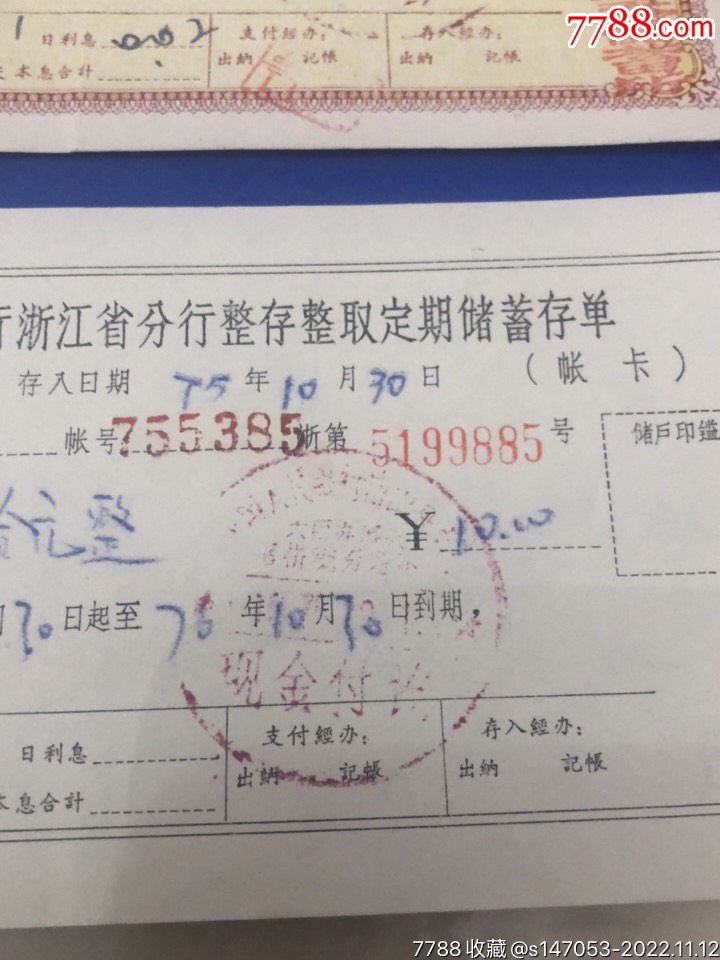 7788.com
日利息 0.02 支付經办: 存入經办:
本息合计 出纳 記帳 出纳 記帳
行浙江省分行整存整取定期储蓄存单
存入日期 75 年 10 月 30 日 (帐 卡)
帐号 755385 浙第 5199885 号 储戶印鑑
元整 ¥ 10.00
月 30 日起至 76 年 10 月 30 日到期,
现金付讫
日利息 支付經办: 存入經办:
本息合计 出纳 記帳 出纳 記帳
7788 收藏 @s147053-2022.11.12